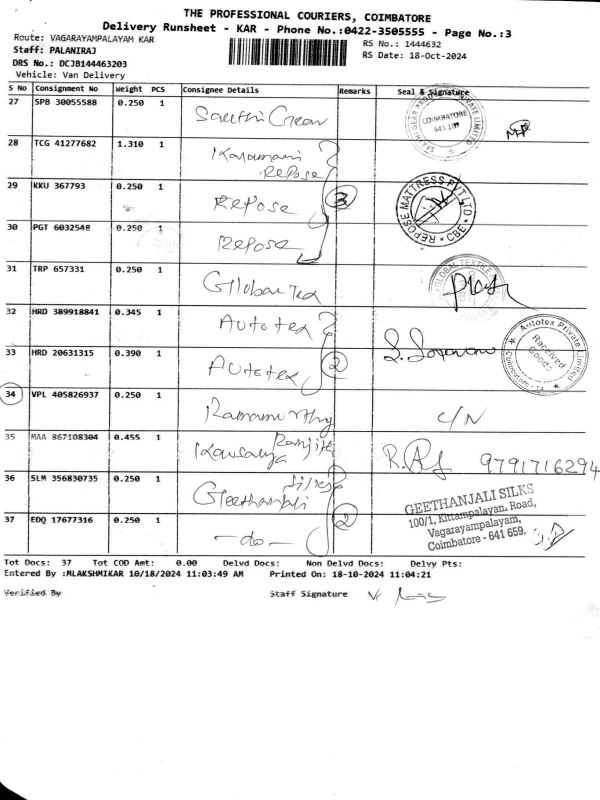 THE PROFESSIONAL COURIERS, COIMBATORE
Delivery Runsheet - KAR - Phone No.:0422-3505555 - Page No.:3
Route: VAGARAYAMPALAYAM KAR
RS No.: 1444632
Staff: PALANIRAJ
RS Date: 18-Oct-2024
DRS No.: DCJB144463203
Vehicle: Van Delivery
S No Consignment No Weight PCS Consignee Details Remarks Seal & Signature
27 SPB 30055588 0.250 1 Sakthi Gear COIMBATORE
28 TCG 41277682 1.310 1 Repose
29 KKU 367793 0.250 1 Repose 3 REPOSE MATTRESS PVT LTD CBE
30 PGT 6032548 0.250 1 Repose
31 TRP 657331 0.250 1 Global Tex GLOBAL TEXTILE
32 HRD 389918841 0.345 1 Autotex
33 HRD 20631315 0.390 1 Autotex 2 Autotex Private Limited Received Goods
34 VPL 405826937 0.250 1 Ramamurthy C/N
35 MAA 867108304 0.455 1 Kausalya Ranjith 9791716294
36 SLM 356830735 0.250 1 Geethanjali Silks
GEETHANJALI SILKS
100/1, Kittampalayan, Road,
Vagarayampalayam,
Coimbatore - 641 659.
37 EDQ 17677316 0.250 1 -do- 2
Tot Docs: 37 Tot COD Amt: 0.00 Delvd Docs: Non Delvd Docs: Delvy Pts:
Entered By :MLAKSHMIKAR 10/18/2024 11:03:49 AM Printed On: 18-10-2024 11:04:21
Verified By Staff Signature